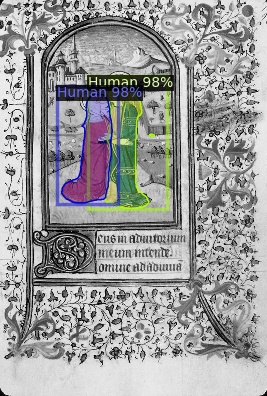 Human 98%
Human 98%
Deus in adiutorium
meum intende
omine ad adiuua